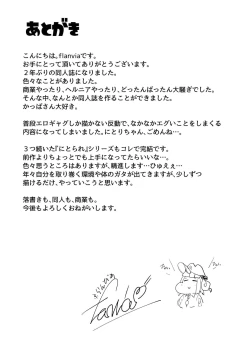 あとがき
こんにちは。flanviaです。
お手にとって頂いてありがとうございます。
2年ぶりの同人誌になりました。
色々なことがありました。
商業やったり、ヘルニアやったり、どったんばったん大騒ぎでした。
そんな中、なんとか同人誌を作ることができました。
かっぱさん大好き。
普段エロギャグしか描かない反動で、なかなかエグいことをしまくる
内容になってしまいました。にとりちゃん、ごめんね…。
3つ続いた『にとられ』シリーズもコレで完結です。
前作よりちょっとでも上手になってたらいいな…。
色々思うところはありますが、精進します…ひゅぇぇ…
年々自分を取り巻く環境や体のガタが出てきますが、少しずつ
描けるだけ、やっていこうと思います。
落書きも、同人も、商業も。
今後もよろしくおねがいします。